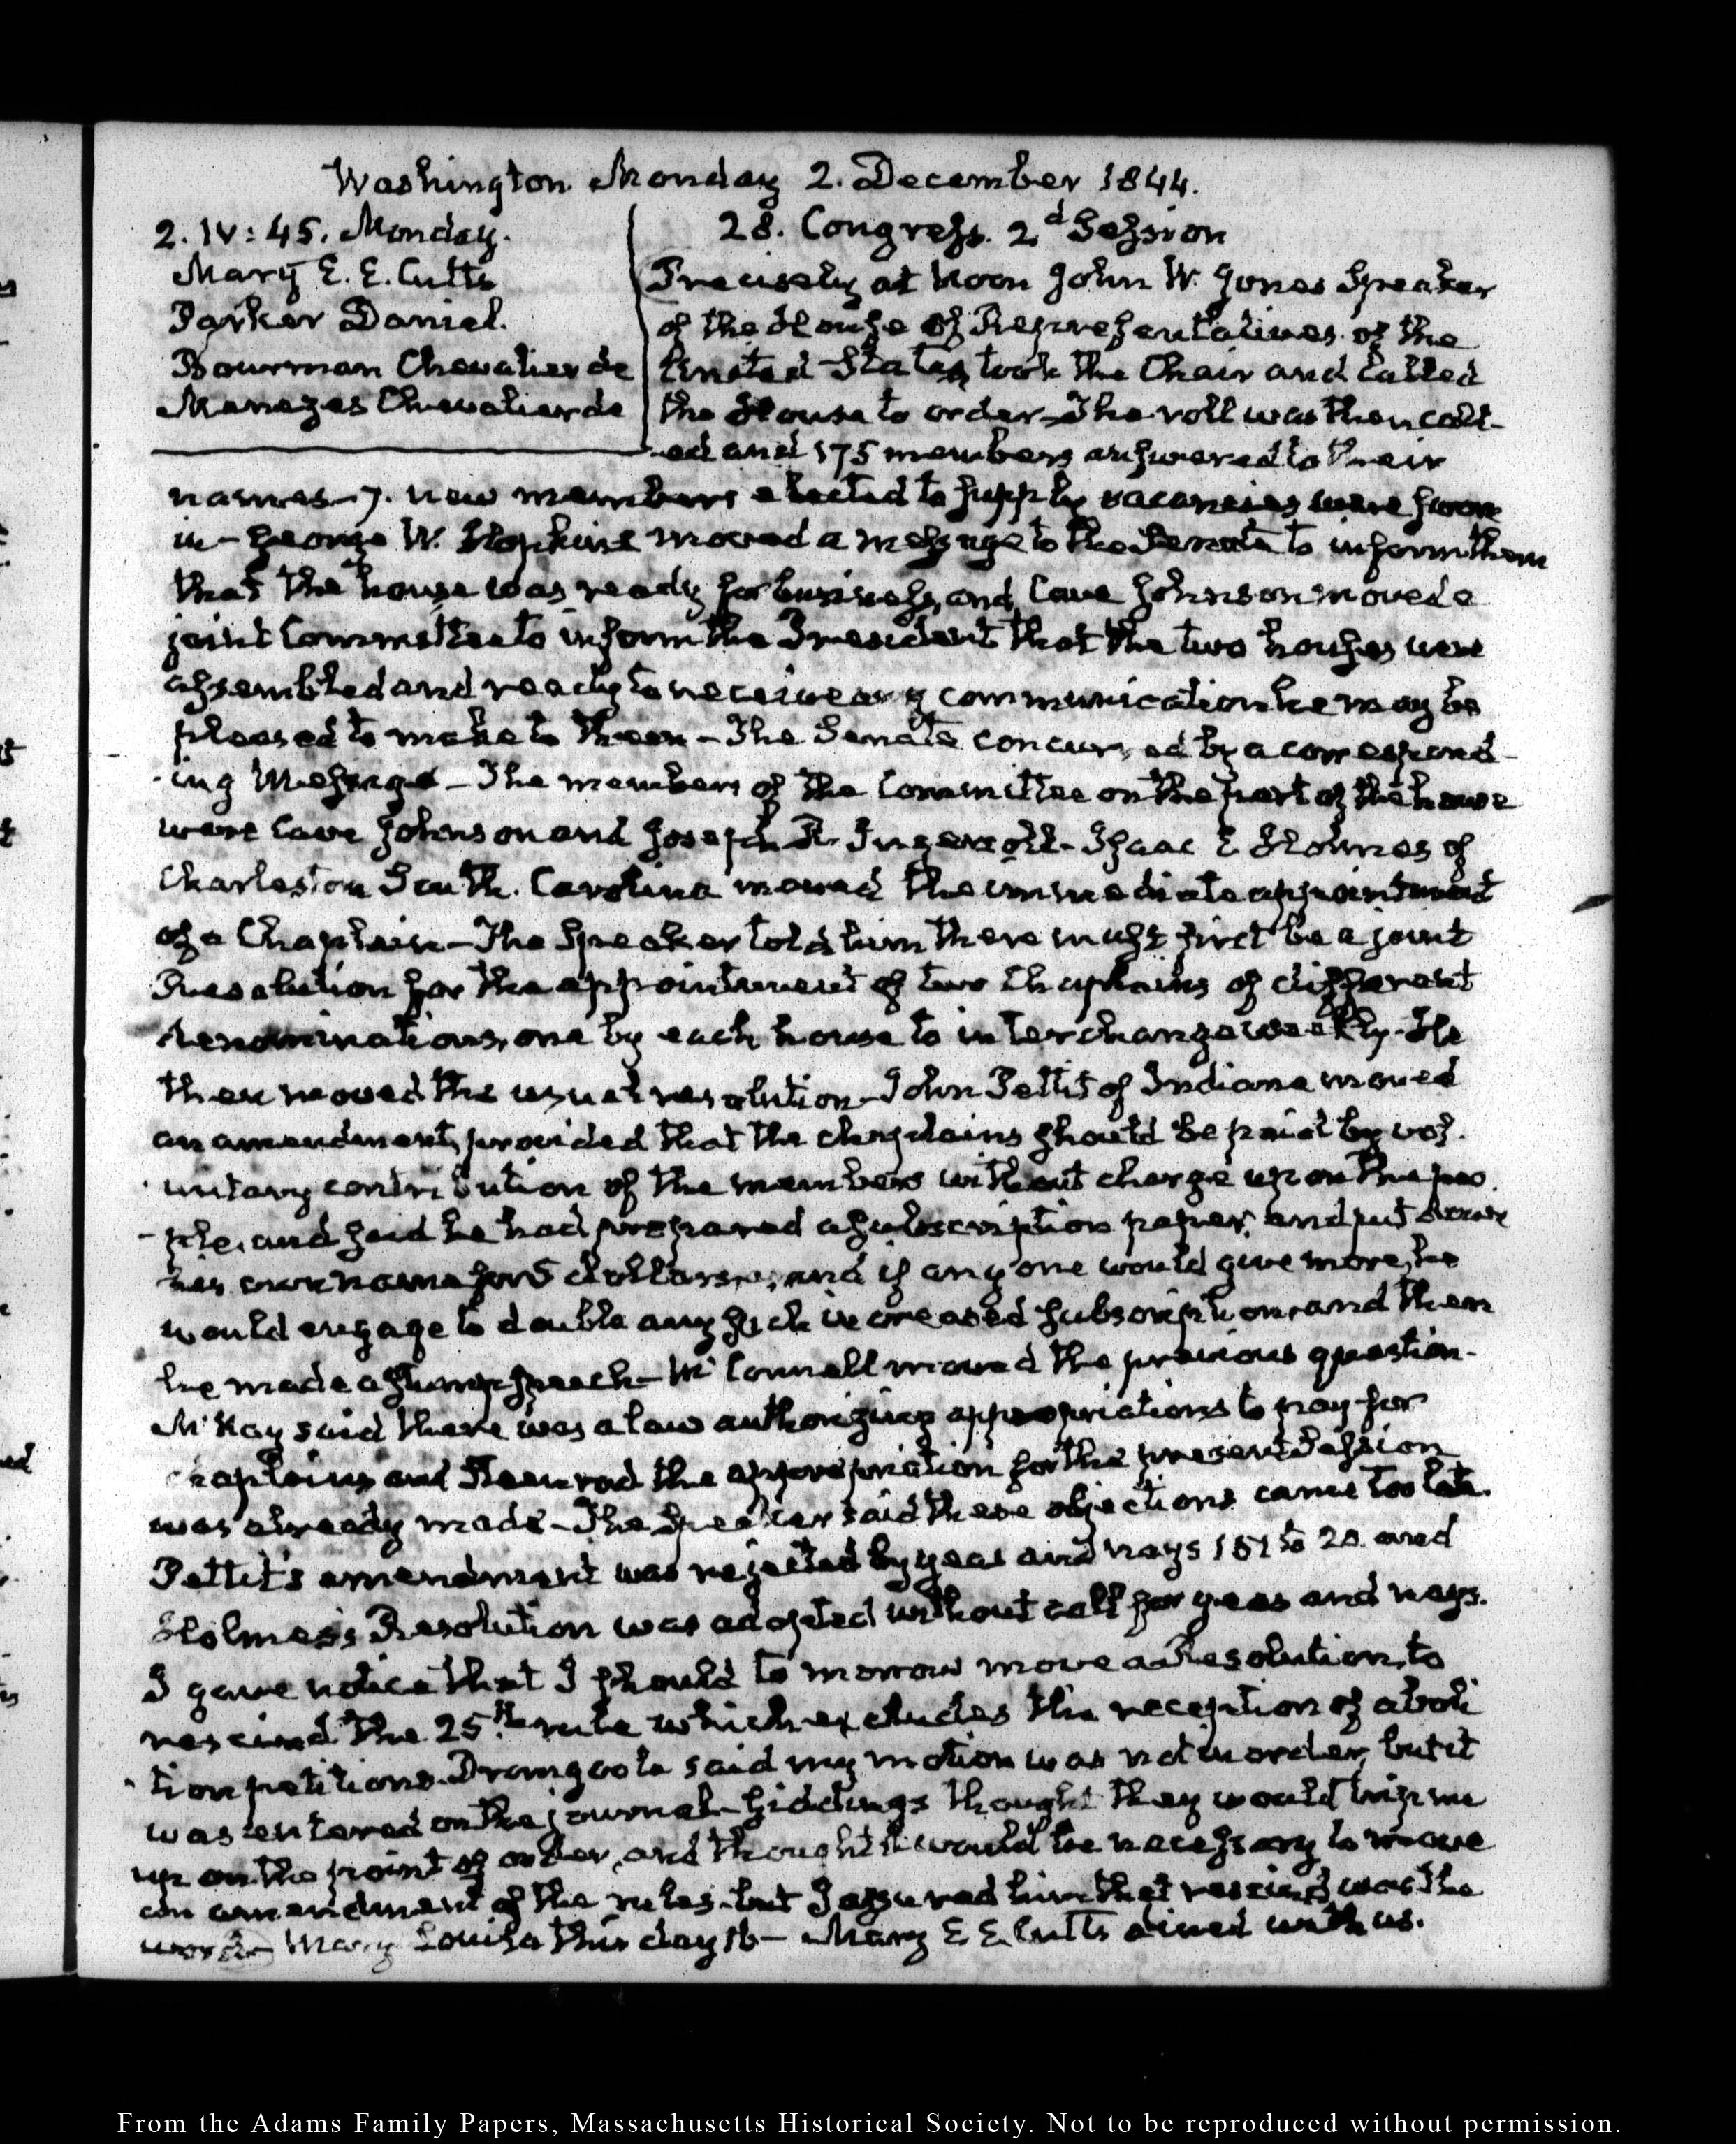 Washington Monday 2. December 1844.
2. IV: 45. Monday.
Mary E. E. Cutts
Parker Daniel.
Bourman Chevalier de
Menezes Chevalier de
28. Congress. 2d Session
Precisely at Noon John W. Jones Speaker
of the House of Representatives of the
United States took the Chair and called
the House to order—The roll was then call-
ed and 175 members answered to their
names—7. new members elected to supply vacancies were sworn
in—George W. Hopkins moved a message to the Senate to inform them
that the house was ready for business, and Cave Johnson moved a
joint Committee to inform the President that the two houses were
assembled and ready to receive any communication he may be
pleased to make to them—The Senate concurred by a correspond-
ing Message—The members of the Committee on the part of the house
were Cave Johnson and Joseph R. Ingersoll—Isaac E Holmes of
Charleston South. Carolina moved the immediate appointment
of a Chaplain—The Speaker told him there must first be a joint
Resolution for the appointment of two Chaplains of different
denominations, one by each house to interchange weekly—He
then moved the usual resolution—John Pettit of Indiana moved
an amendment, provided that the chaplains should be paid by vol-
untary contribution of the members without charge upon the peo-
ple, and said he had prepared a subscription paper, and put down
his own name for 5 dollars, and if any one would give more, he
would engage to double any such increased subscription, and then
he made a stump speech—McConnell moved the previous question—
McKay said there was a law authorizing appropriations to pay for
chaplains and Steenrod the appropriation for the present Session
was already made—The Speaker said these objections came too late.
Pettit's amendment was rejected by yeas and nays 151 to 20. and
Holmes's Resolution was adopted without call for yeas and nays.
I gave notice that I should to morrow move a Resolution, to
rescind the 25th. rule which excludes the reception of aboli
tion petitions. Dromgoole said my motion was not in order, but it
was entered on the journal—Giddings thought they would trip me
up on the point of order, and thought it would be necessary to move
an amendment of the rules—but I assured him that rescind was the
word— Mary Louisa this day 16— Mary E. E. Cutts dined with us.
From the Adams Family Papers, Massachusetts Historical Society. Not to be reproduced without permission.